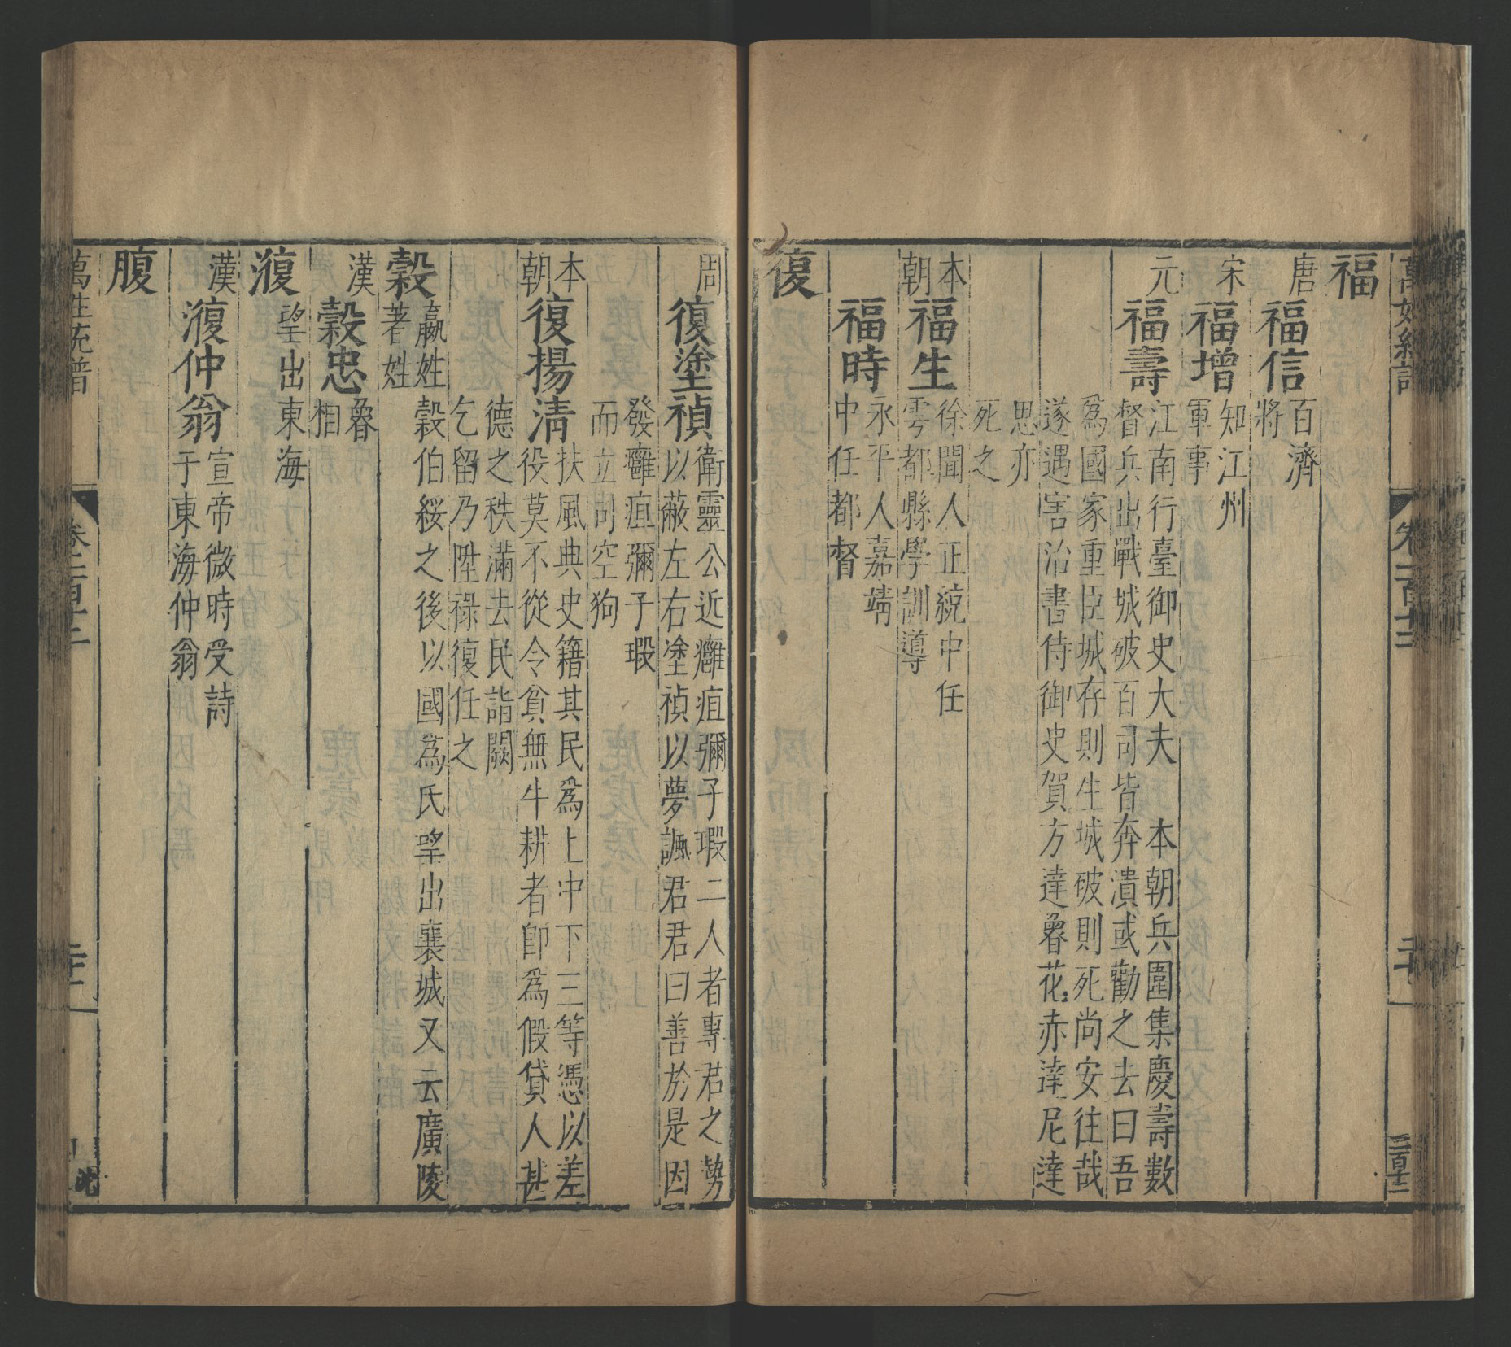 福
唐 福信 百濟
將
宋 福增 知江州
軍事
元 福壽 江南行臺御史大夫 本朝兵圍集慶壽數
督兵出戰城破百司皆奔潰或勸之去曰吾
爲國家重臣城存則生城破則死尚安往哉
遂遇害治書侍御史賀方達魯花赤達尼達
思亦
死之
本朝 福生 徐聞人正統中任
雲都縣學訓導
福時 永平人嘉靖
中任都督
復
周 復塗禎 衛靈公近癰疽彌子瑕二人者專君之勢
以蔽左右塗禎以夢諷君君曰善於是因
發癰疽彌子瑕
而立司空狗
本朝 復揚清 扶風典史籍其民爲上中下三等憑以差
役莫不從令貧無牛耕者卽爲假貸人甚
德之秩滿去民詣闕
乞留乃陞祿復任之
穀 嬴姓 穀伯綏之後以國爲氏望出襄城又云廣陵
著姓
漢 穀忠 魯
相
澓 望出東海
漢 澓仲翁 宣帝微時受詩
于東海仲翁
腹
萬姓統譜